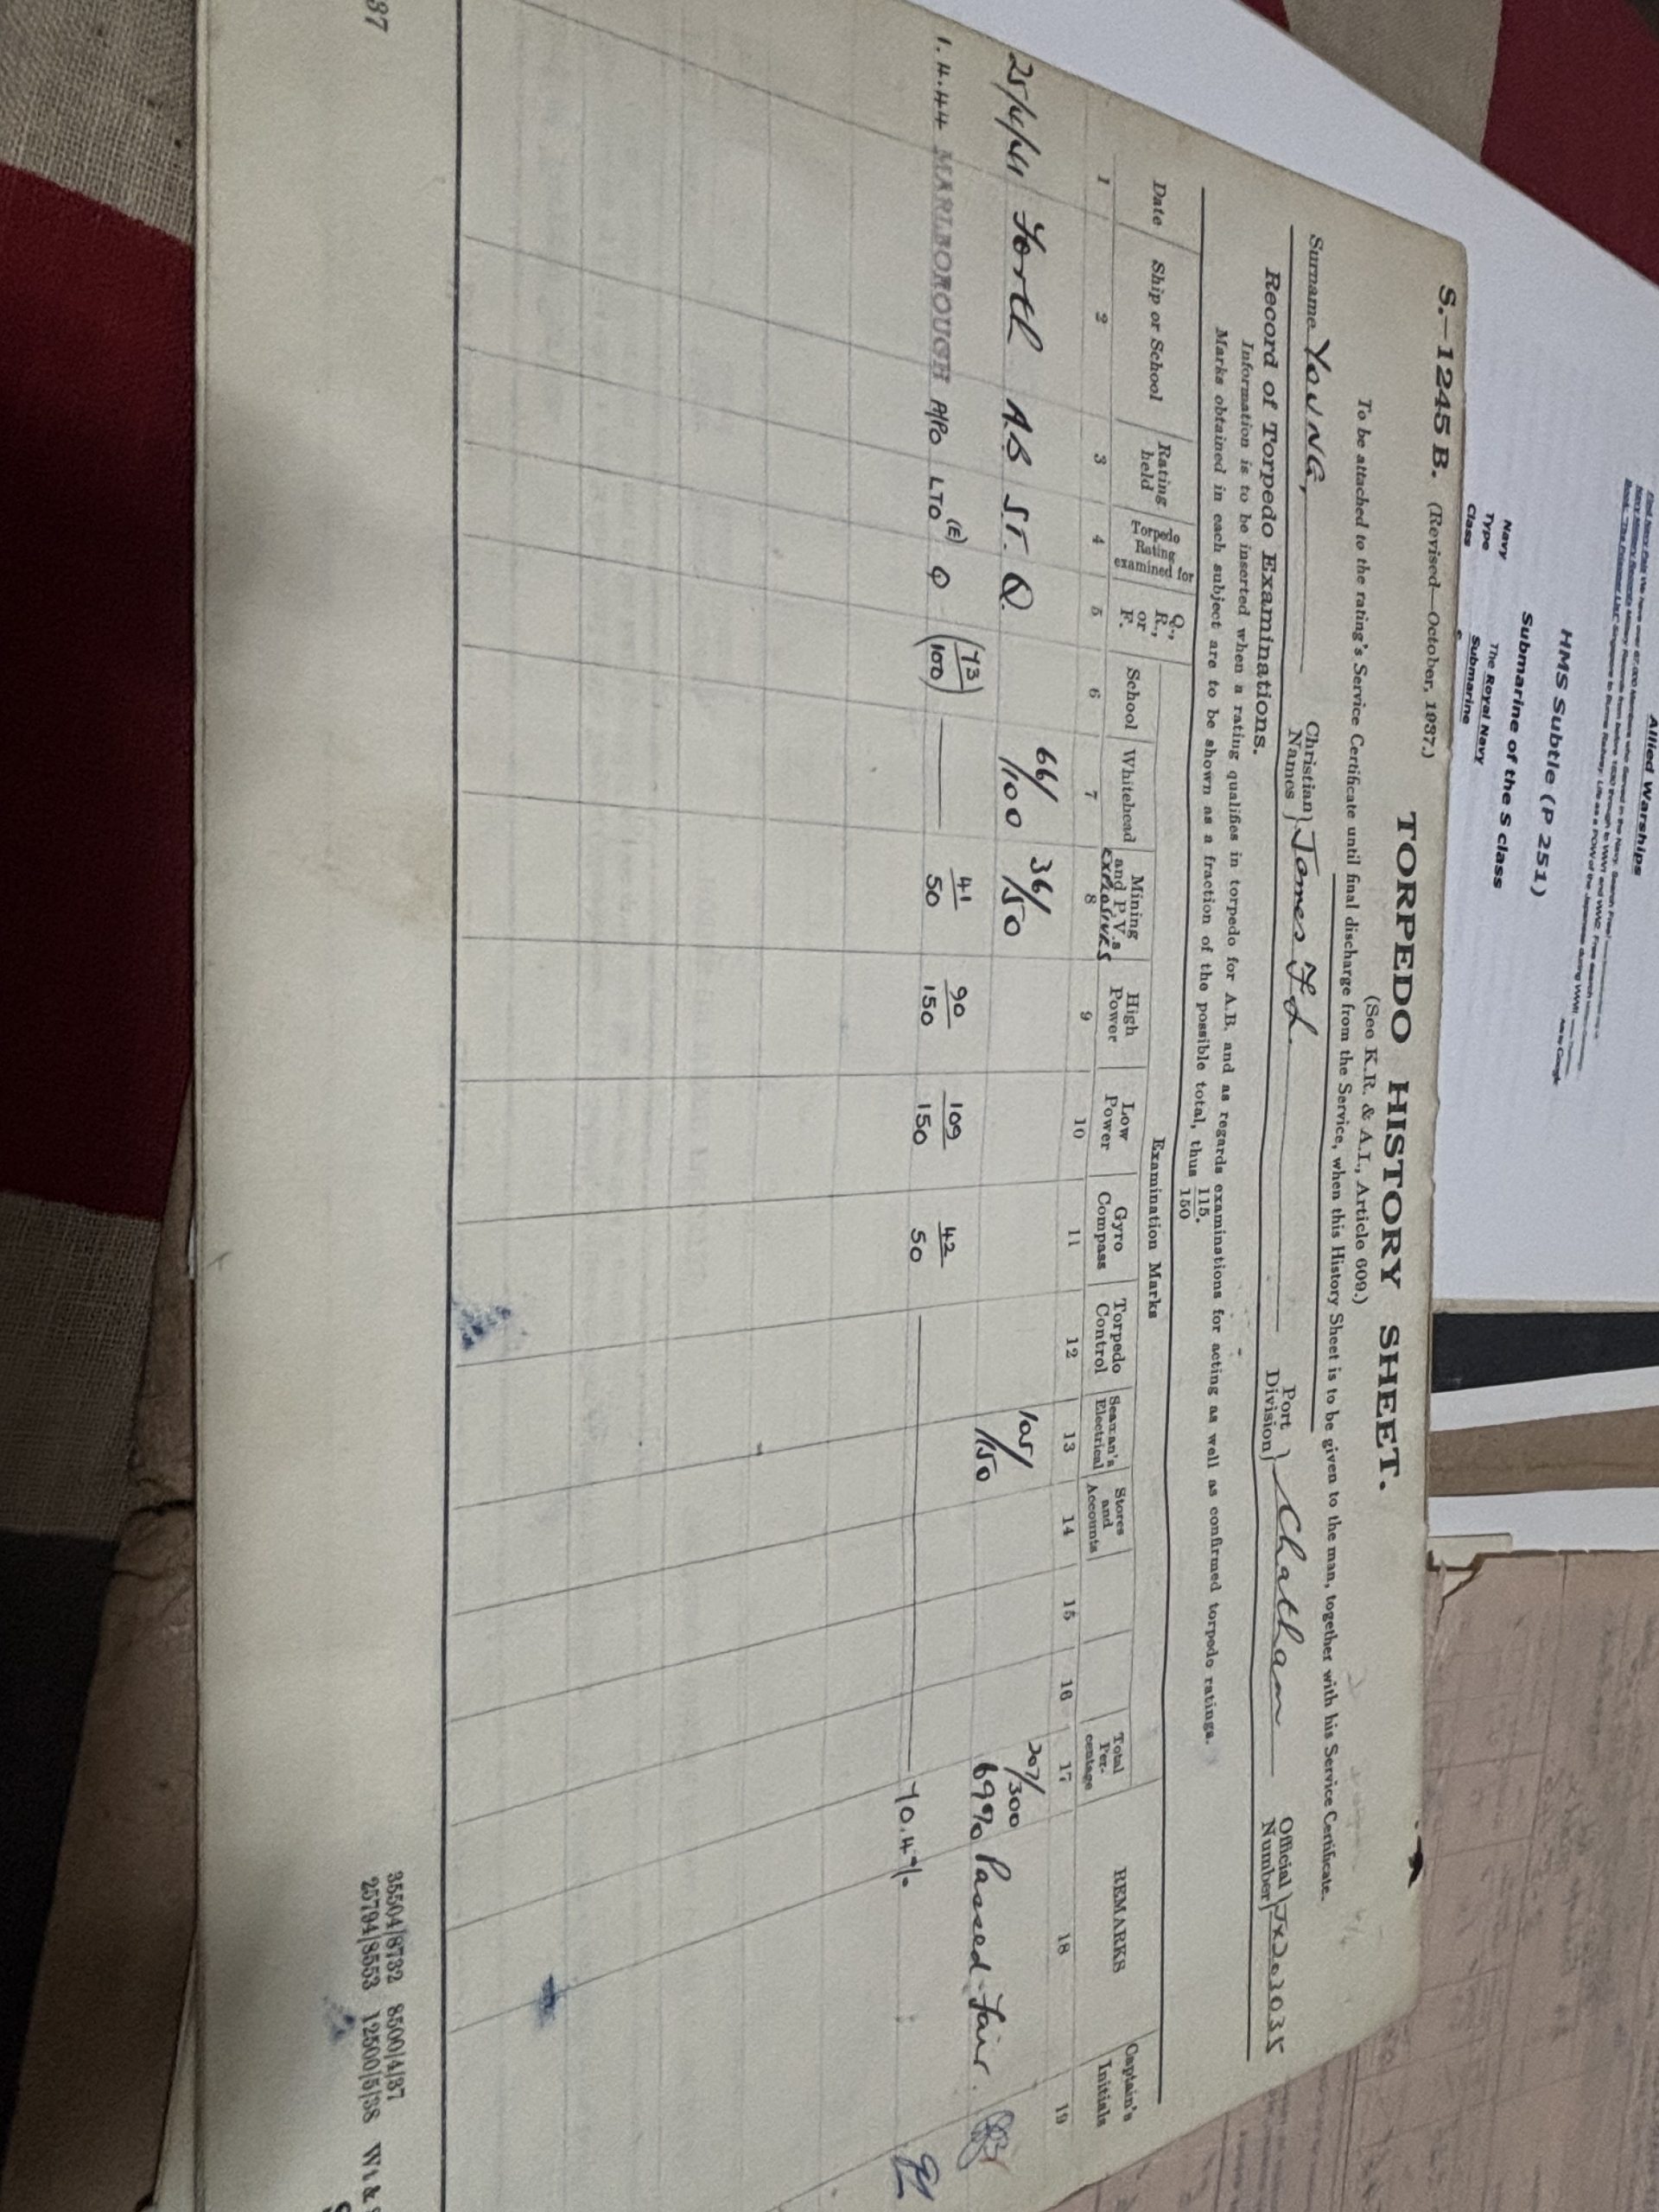 S.—1245 B. (Revised—October, 1937.)
TORPEDO HISTORY SHEET.
(See K.R. & A.I., Article 609.)
To be attached to the rating's Service Certificate until final discharge from the Service, when this History Sheet is to be given to the man, together with his Service Certificate.
Surname YOUNG, Christian Names } James Fd. Port Division } Chatham Official Number } JX202035
Record of Torpedo Examinations.
Information is to be inserted when a rating qualifies in torpedo for A.B. and as regards examinations for acting as well as confirmed torpedo ratings.
Marks obtained in each subject are to be shown as a fraction of the possible total, thus 115/150.
Examination Marks
Date Ship or School Rating held Torpedo Rating examined for Q., R., or F. School Whitehead Mining and P.V.s EXPLOSIVES High Power Low Power Gyro Compass Torpedo Control Seaman's Electrical Stores and Accounts Total Percentage REMARKS Captain's Initials
1 2 3 4 5 6 7 8 9 10 11 12 13 14 15 16 17 18 19
25/4/41 Forth AB ST. Q. 66/100 36/50 105/150 207/300 69% Passed-Fair.
1.4.44 MARLBOROUGH A/PO LTO (E) Q (73/100) 41/50 90/150 109/150 42/50 70.4%
35504/8732 8500/4/37
25794/8553 12500/5/38 Wt &
37
Allied Warships
HMS Subtle (P 251)
Submarine of the S class
Navy The Royal Navy
Type Submarine
Class S
Ads by Google